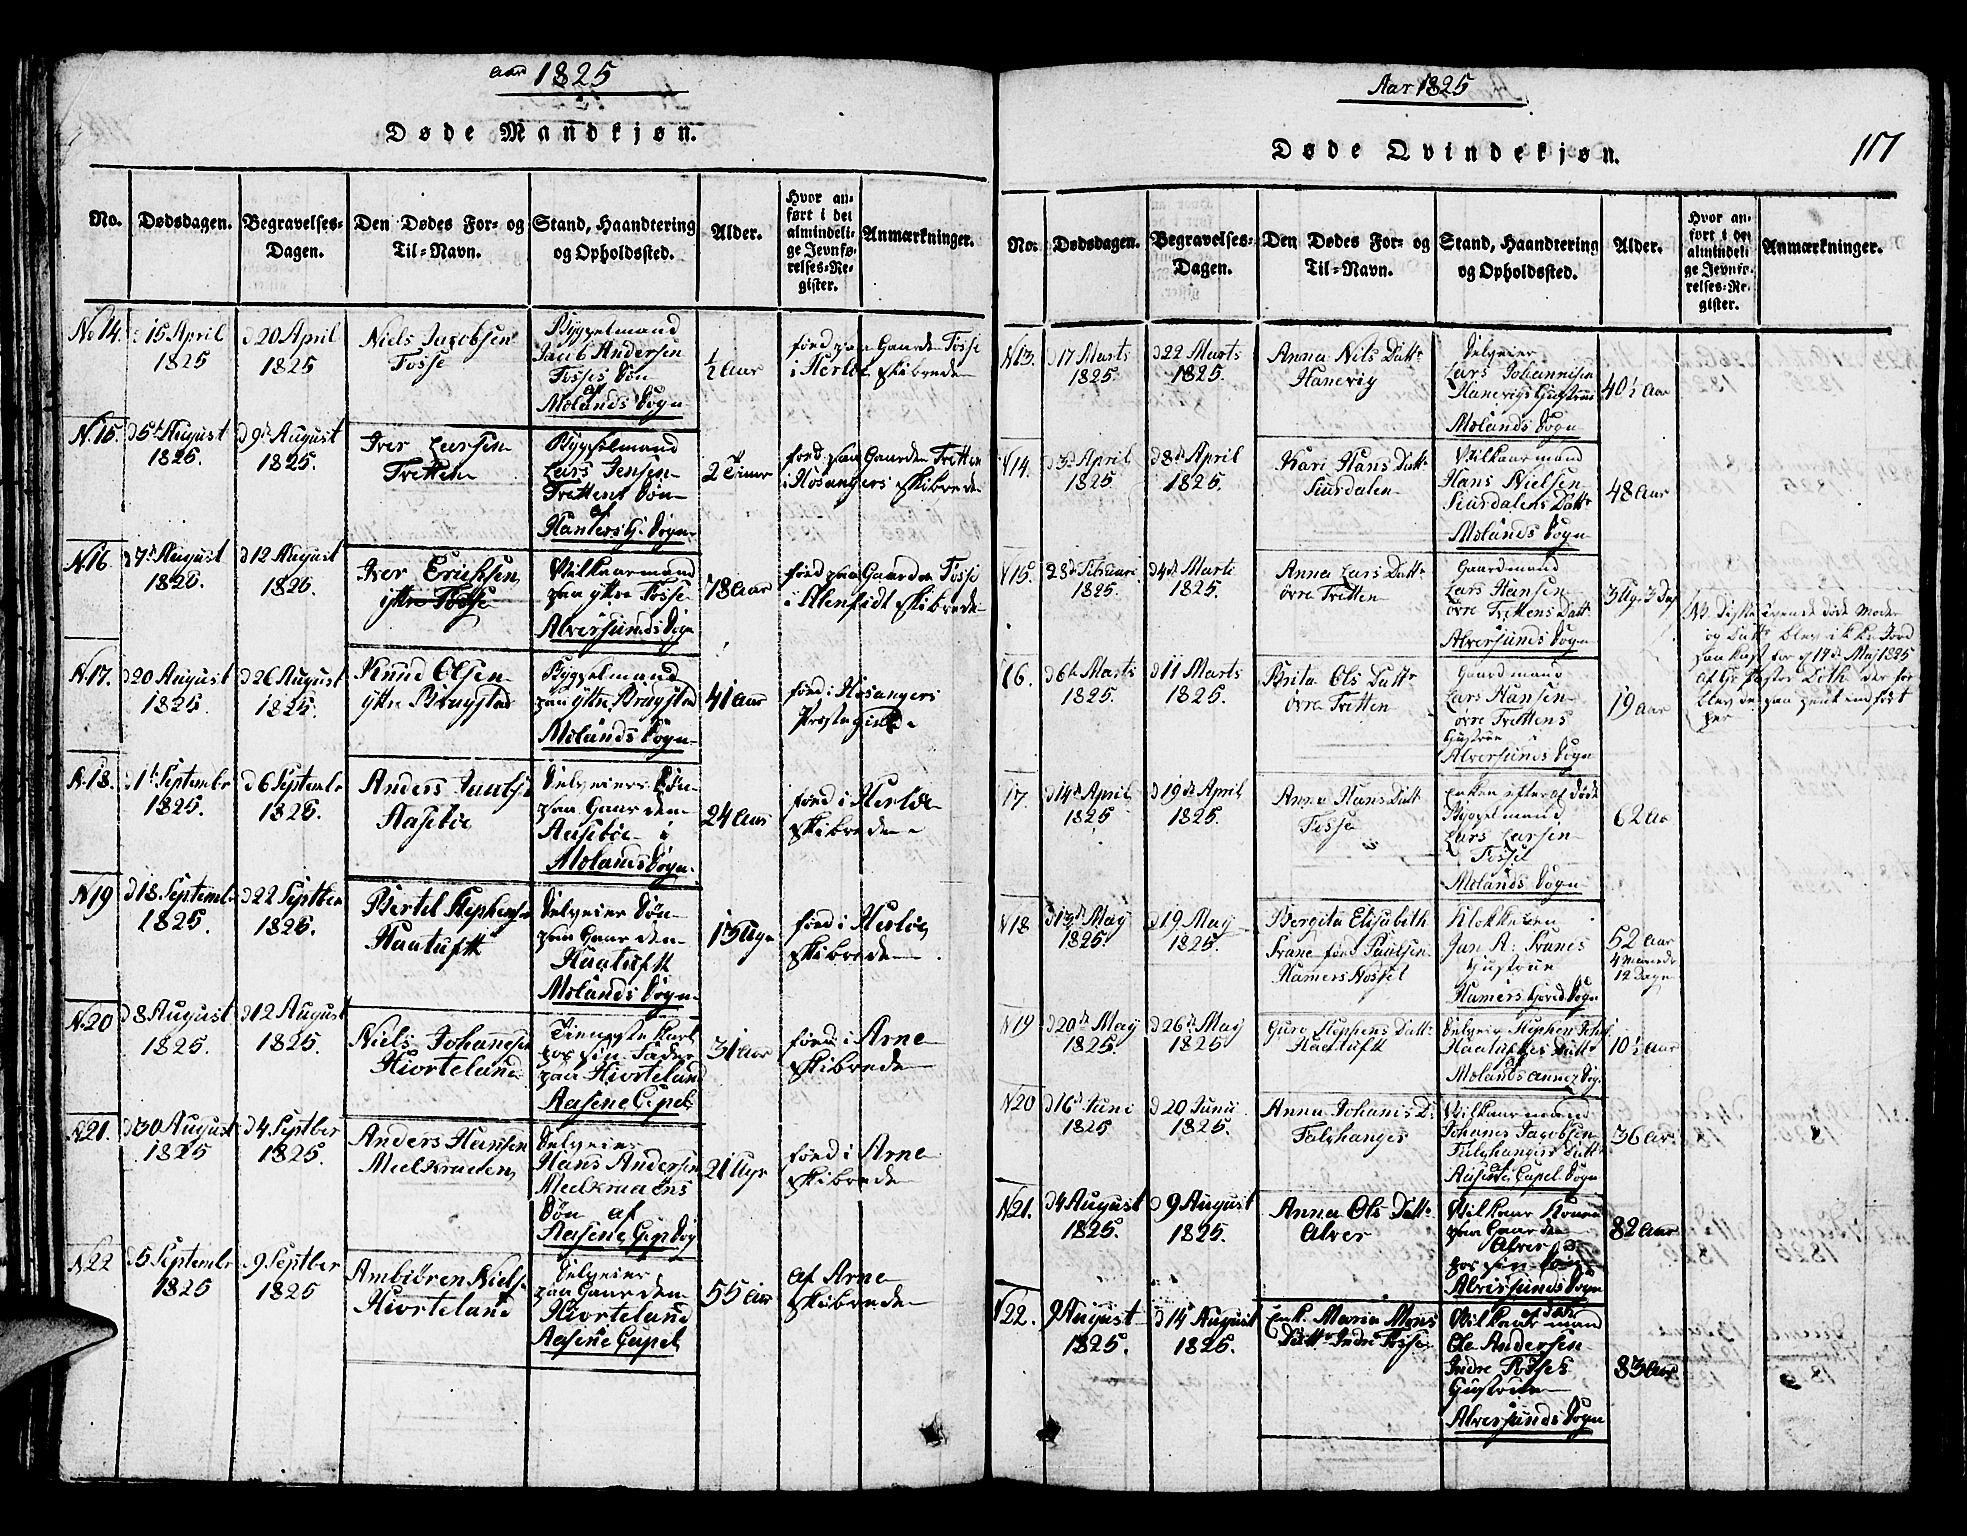 Aar 1825
Døde Mandkjøn.
No.
Dødsdagen.
Begravelses-
Dagen.
Den Dødes For- og
Til-Navn.
Stand, Haandtering
og Opholdssted.
Alder.
Hvor an-
ført i det
almindeli-
ge Jevnfø-
relses-Re-
gister.
Anmærkninger.
No 14.
15 April
1825
d 20 April
1825
Niels Jacobsen
Fosse
Bygselmand
Jacob Andersen
Fosses Søn
af
Mølands Sogn
½ Aar
fød paa Gaarden Fosse
i Herlø skibrede
N.15.
d 5te August
1825.
d 9de August
1825.
Iver Larsen
Tretten
Bygselmand
Lars Jensen
Trettens Søn
af
Hamers G. Sogn
2 Timer
fød paa Gaarden Tretten
i Hosangers skibrede
N.16
d 7de August
1825.
d 12 August
1825.
Iver Erichsen
ÿttre Fosse
Vilkaarmand
paa ÿttre Fosse
Alversunds Sogn
78 Aar
fød paa Gaarden Fosse
i Alenfidt skibrede
N.17.
d 20 August
1825.
d 26 August
1825.
Knud Olsen
ÿttre Bragstad
Bygselmand
paa ÿttre Bragstad
Mølands Sogn
41 Aar
fød i Hosangers
Prestegield
N.18.
d 1te Septembr
1825.
d 6 Septembr
1825.
Anders
Aasebøe
Selveiers Søn
paa Gaarden
Aasebøe i
Mølands Sogn
24 Aar
fød i Herlø
skibrede
N 19
d 18 Septembr
1825.
d 22 Septber
1825.
Bertel Stephensen
Haatuft
Selveier Søn
paa Gaarden
Haatuft
Mølands Sogn
13 Uger
fød i Herløe
skibrede
N.20
d 8 August
1825.
d 12 August
1825.
Niels Johannesen
Hiorteland
Tieneste Karl
hos sin Fader
paa Hiorteland
Aasene Capel
31 Aar
fød i Arne
skibrede
N.21.
d 30 August
1825
d 4 Septber
1825.
Anders Hansen
Meelkraaen
Selveier
Hans Andersen
Meelkraaens
Søn af
Aasene Cap. Sogn
21 Uger
fød i Arne
skibrede
N.22
5 Septembr
1825
9 Septber
1825
Ambiören Niels
Hiorteland
Selveier
paa Gaarden
Hiorteland
Aasene Capel
55 Aar
af Arne
skibrede
Aar 1825
Døde Qvindekjøn.
117
No.
Dødsdagen.
Begravelses-
Dagen.
Den Dødes For- og
Til-Navn.
Stand, Haandtering
og Opholdssted.
Alder.
Hvor an-
ført i det
almindeli-
ge Jevnfø-
relses-Re-
gister.
Anmærkninger.
N 13.
d 17 Marts
1825.
d 22 Marts
1825.
Anna Nils Dattr
Hanevig
Selveier
Lars Johannesen
Hanevigs Hustrue
Mølands Sogn
40½ Aar
N 14.
d 3de April
1825
d 8de April
1825.
Kari Hans Dattr
Siurdalen
Vilkaarmand
Hans Nielsen
Siurdalens Dattr
Mølands Sogn
48 Aar
N 15.
28de Februari
1825.
d 4de Marti
1825.
Anna Lars Dattr
övre Tretten
Gaardmand
Lars Hansen
övre Trettens Dattr
Alversunds Sogn
3 Uger 3 Dag
16.
d 6te Marti
1825
d 11 Marts
1825
Brita Ols Dattr
övre Tretten
Gaardmand
Lars Hansen
övre Trettens
Hustrue i
Alversunds Sogn
19 Aar
NB. Disse døde Moder
og Dattr blev ikke Jord
paa Kast for d 17de Maj 1825
af Hr Pastor
17.
d 14de April
1825
d 19de April
1825.
Anna Hans Datt
Fosse
Enken efter afdöde
Bygselmand
Lars Larsen
Fosse
Mølands Sogn
62 Aa
N 18
d 13de May
1825
d 19 May
1825.
Bergita Elisabeth
Irane fød Paulsen
Hamers Hosset
Klokkeren
Jan A: Iranes
Hustrue
Hamers Hovid Sogn
52 Aar
4 Maaneder
12 Dage
N 19
d 20de May
1825.
d 26de May
1825
Guro Stephens Dattr
Haatuft
Selveier Stephen
Haatuftes Dattr
Mølands Annex Sog.
10½ Aar
N 20
d 16de Juni
1825
d 20 Junii
1825.
Anna Johanis D:
Falkhanger
Vilkaarmand
Johanes Jacobsen
Falkhangers Dattr
Aasene Capel Sogn
36 Aar.
N.21.
d 4 August
1825.
d 9 August
1825.
Anna Ols Dattr
Alver
Vilkaar Konen
paa Gaarden
Alver
hos sin Søn
Alversunds Sogn
82 Aar
N 22.
9 August
1825.
d 14de August
1825.
Enk. Maria Mons
Dattr Indre Fosse
Vilkaar mand
Ole Andersen
Indre Fosses
Hustrue
Alversunds Sogn
83 Aar